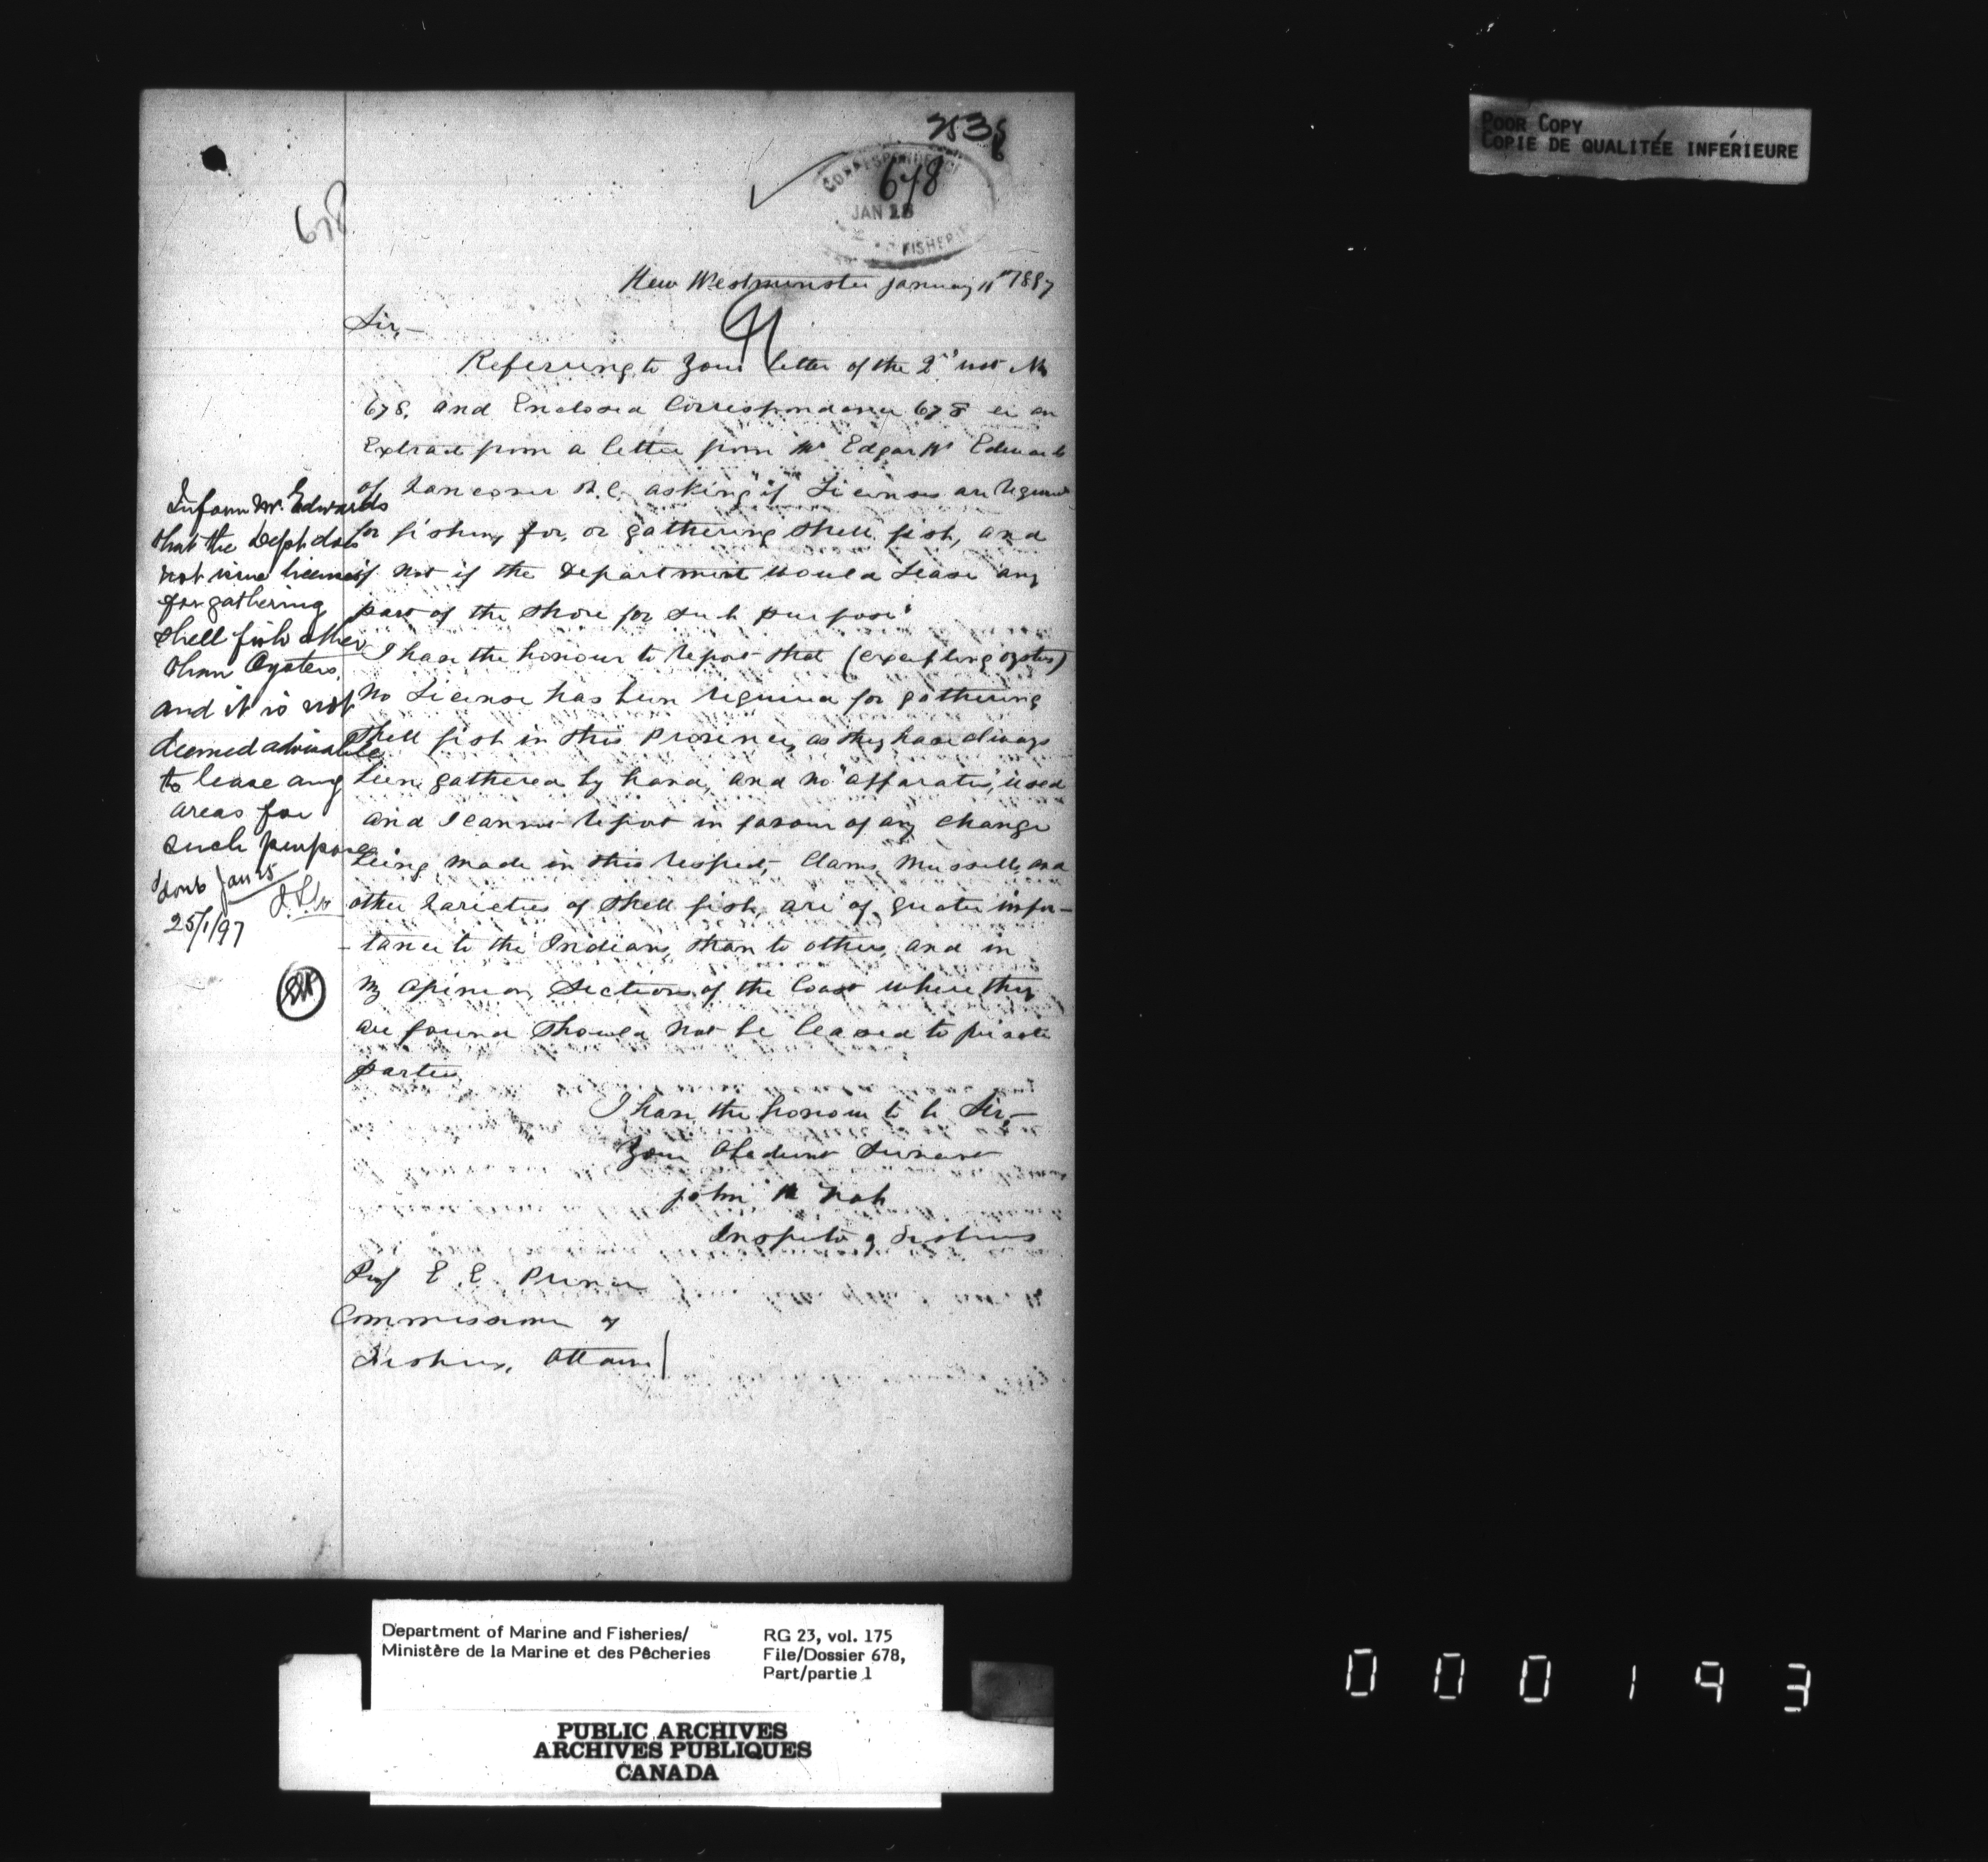 POOR COPY
COPIE DE QUALITÉE INFÉRIEURE
678
JAN 18
FISHERI
678
New Westminster January 11th 1897
Sir,—
Referring to your letter of the 2nd inst No
678, and Enclosed Correspondence 678 an
Extract from a letter from Mr Edgar W Edwards
of Vancouver B.C. asking "if Licenses are required
for fishing for, or gathering shell fish, and
if not if the Department would Lease any
part of the shore for such purpose"
I have the honour to report that (excepting oysters)
no License has been required for gathering
shell fish in this Province, as they have always
been gathered by hand, and no "apparatus" used
and I cannot report in favour of any change
being made in this respect, Clams, Mussells, and
other varieties of shell fish, are of greater impor-
-tance to the Indians, than to others, and in
my opinion, Sections of the Coast where they
are found should not be leased to private
parties
I have the honour to be Sir,—
Your Obedient Servant
John McNab
Inspector of Fisheries
Prof E. E. Prince
Commissioner of
Fisheries, Ottawa
Inform Mr. Edwards
that the Dept does
not issue licenses
for gathering
shell fish other
than Oysters,
and it is not
deemed advisable
to lease any
areas for
such purposes
Jan 25
25/1/97
Department of Marine and Fisheries/
Ministère de la Marine et des Pêcheries
RG 23, vol. 175
File/Dossier 678,
Part/partie 1
PUBLIC ARCHIVES
ARCHIVES PUBLIQUES
CANADA
000193